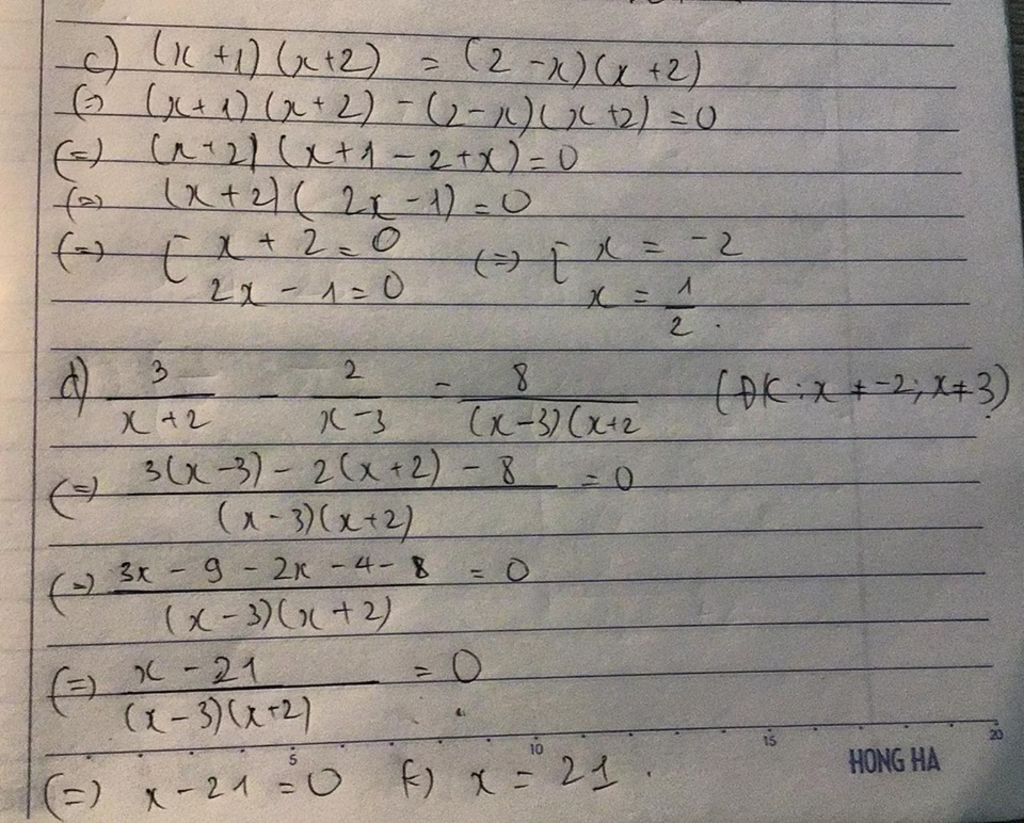 c) (x+1)(x+2) = (2-x)(x+2)
(=) (x+1)(x+2) - (2-x)(x+2) = 0
(=) (x+2)(x+1-2+x) = 0
(=) (x+2)(2x-1) = 0
(=) [ x+2 = 0 (=) [ x = -2
2x-1 = 0 x = 1/2.
d) 3/(x+2) - 2/(x-3) = 8/(x-3)(x+2 (ĐK: x ≠ -2; x ≠ 3)
(=) 3(x-3) - 2(x+2) - 8 / (x-3)(x+2) = 0
(=) 3x - 9 - 2x - 4 - 8 / (x-3)(x+2) = 0
(=) x - 21 / (x-3)(x+2) = 0
5 10 15 20
HONG HA
(=) x - 21 = 0 (=) x = 21.